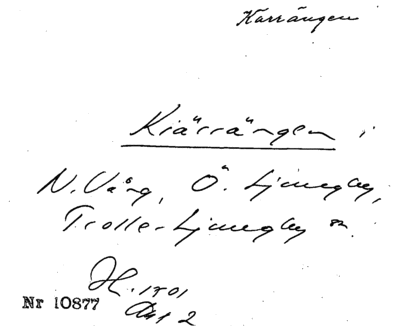 Karrängen
Kiärrängen i
N. Vång, Ö. Ljungby,
Trolle-Ljungby sn.
H. 1701
Akt 2
Nr 10877